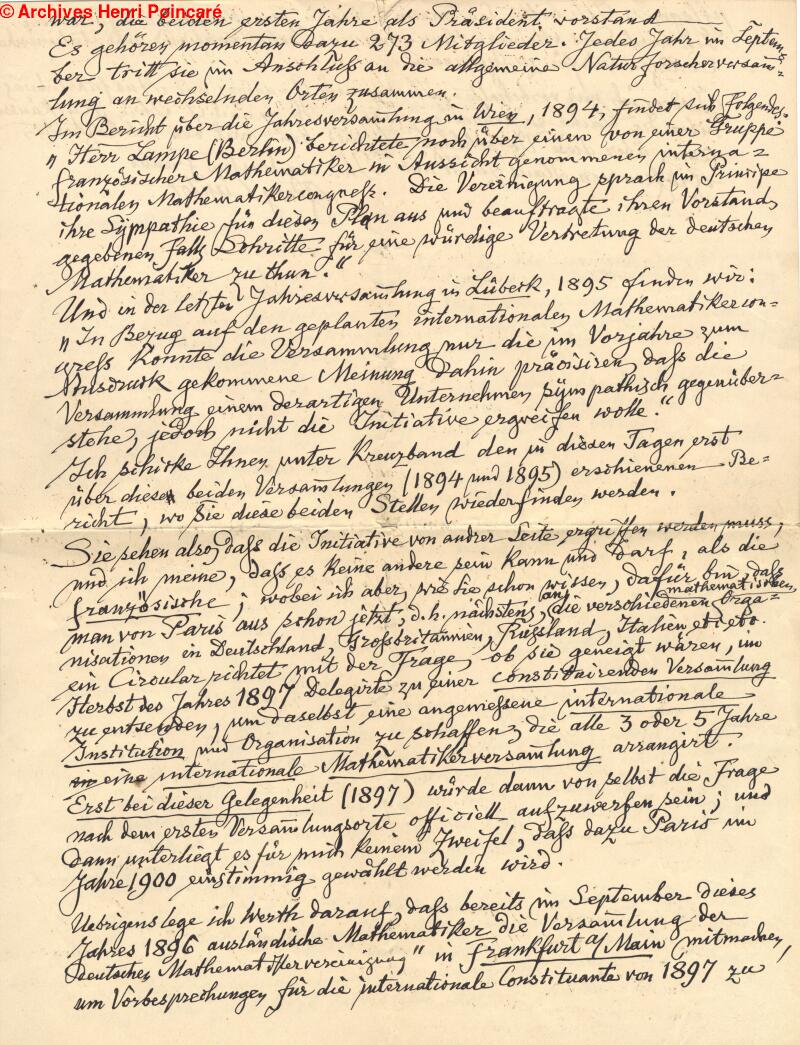 © Archives Henri Poincaré
war, die beiden ersten Jahre als Präsident vorstand
Es gehören momentan dazu 273 Mitglieder. Jedes Jahr im Septem=
ber tritt sie im Anschluss an die allgemeine Naturforscherversam̄=
lung an wechselnden Orten zusammen.
Im Bericht über die Jahresversam̄lung in Wien, 1894, findet sich folgendes:
„Herr Lampe (Berlin) berichtete noch über einen von einer Gruppe
französischer Mathematiker in Aussicht genommenen interna=
tionalen Mathematikercongress. Die Vereinigung sprach im Principe
ihre Sympathie für diesen Plan aus und beauftragte ihren Vorstand,
gegebenen Falls Schritte für eine würdige Vertretung der deutschen
Mathematiker zu thun."
Und in der letzten Jahresversam̄lung in Lübeck, 1895 finden wir:
„In Bezug auf den geplanten internationalen Mathematikercon=
gress konnte die Versammlung nur die im Vorjahre zum
Ausdruck gekommene Meinung dahin präcisiren, dass die
Versammlung einem derartigen Unternehmen sympathisch gegenüber=
stehe, jedoch nicht die Initiative ergreifen wolle."
Ich schicke Ihnen unter Kreuzband den in diesen Tagen erst
über diese beiden Versam̄lungen (1894 und 1895) erschienenen Be=
richt, wo Sie diese beiden Stellen wiederfinden werden.
Sie sehen also, dass die Initiative von andrer Seite ergriffen werden muss,
und ich meine, dass es keine andere sein kann und darf, als die
französische; wobei ich aber, wie Sie schon wissen, dafür bin, dass
man von Paris aus schon jetzt, d.h. nächstens, an die verschiedenen mathematischen Orga=
nisationen in Deutschland, Grossbritannien, Russland, Italien etc etc.
ein Circular richtet mit der Frage, ob sie geneigt wären, im
Herbst des Jahres 1897 Delegirte zu einer constituirenden Versam̄lung
zu entsenden, um daselbst eine angemessene internationale
Institution und Organisation zu schaffen, die alle 3 oder 5 Jahre
eine internationale Mathematikerversam̄lung arrangirt.
Erst bei dieser Gelegenheit (1897) würde dann von selbst die Frage
nach dem ersten Versam̄lungsorte officiell aufzuwerfen sein; und
dann unterliegt es für mich keinem Zweifel, dass dazu Paris im
Jahre 1900 einstimmig gewählt werden wird.
Uebrigens lege ich Werth darauf, dass bereits im September dieses
Jahres 1896 ausländische Mathematiker die Versam̄lung der
„Deutschen Mathematikervereinigung" in Frankfurt a/Main mitmachen,
um Vorbesprechungen für die internationale Constituante von 1897 zu